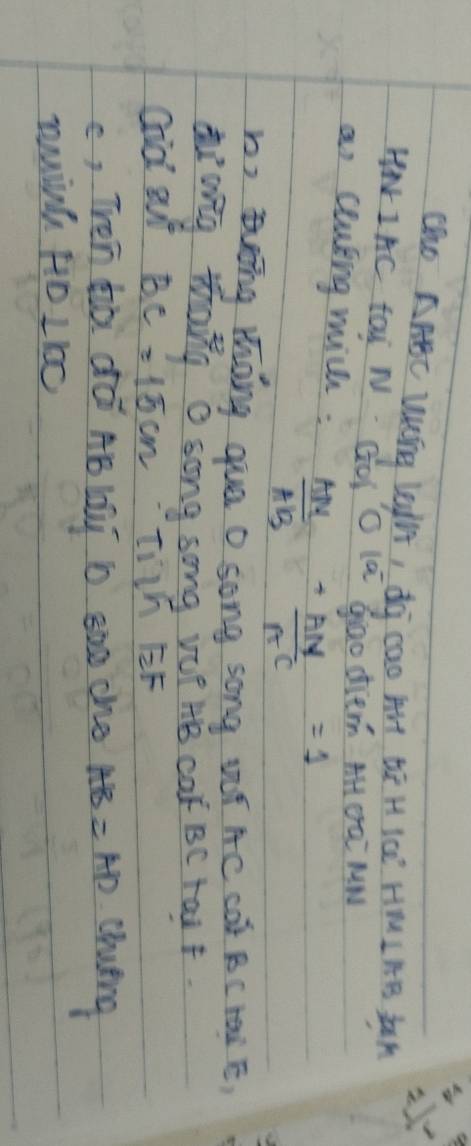 Cho ΔABC vuông tại A, đg cao AH từ H kẻ HM ⊥ AB tại M
HN ⊥ AC tại N. Gọi O là giao điểm AH và MN
a, Chứng minh: AM/AB + AN/AC = 1
b, Đường thẳng qua O song song với AC cắt BC tại E,
đường thẳng O song song với AB cắt BC tại F.
Giả sử BC = 15 cm. Tính EF
c, Trên tia đối AB lấy D sao cho AB = AD. Chứng
minh HD ⊥